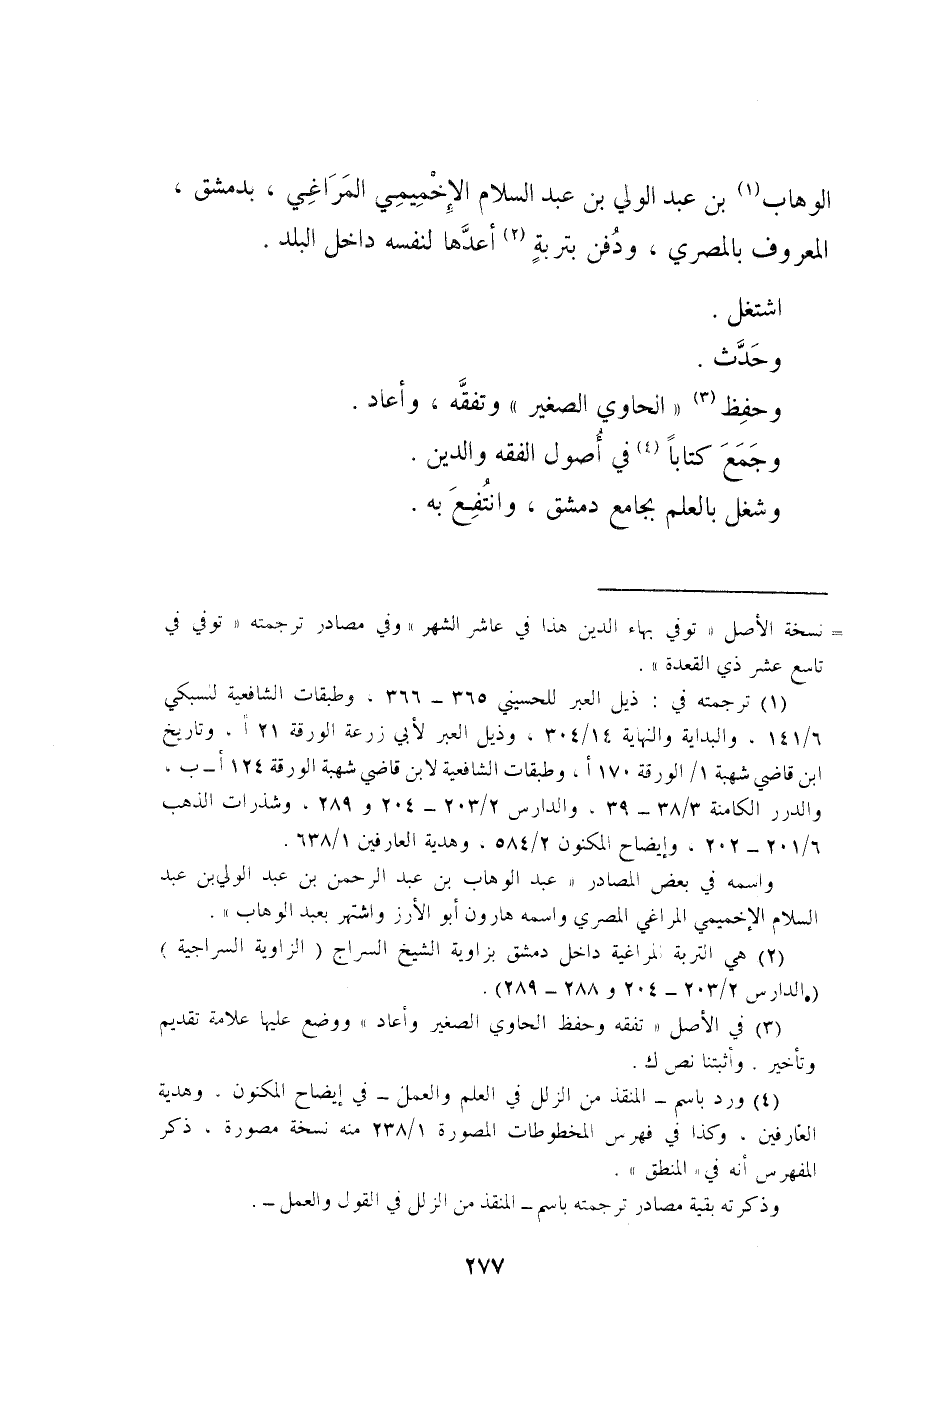 الوهاب(١) بن عبد الولي بن عبد السلام الإِخْمِيمِي المَرَاغِي ، بدمشق ،
المعروف بالمصري ، ودُفن بتربةٍ (٢) أعدَّها لنفسه داخل البلد .
اشتغل .
وحَدَّث .
وحفِظ (٣) « الحاوي الصغير » وتفقَّه ، وأعاد .
وجَمَعَ كتاباً (٤) في أُصول الفقه والدين .
وشغل بالعلم بجامع دمشق ، وانتُفِعَ به .
= نسخة الأصل « توفي بهاء الدين هذا في عاشر الشهر » وفي مصادر ترجمته « توفي في
تاسع عشر ذي القعدة » .
(١) ترجمته في : ذيل العبر للحسيني ٣٦٥ ــ ٣٦٦ ، وطبقات الشافعية لسبكي
١٤١/٦ ، والبداية والنهاية ٣٠٤/١٤ ، وذيل العبر لأبي زرعة الورقة ٢١ أ ، وتاريخ
ابن قاضي شهبة ١/ الورقة ١٧٠ أ ، وطبقات الشافعية لابن قاضي شهبة الورقة ١٢٤ أ ــ ب ،
والدرر الكامنة ٣٨/٣ ــ ٣٩ ، والدارس ٢٠٣/٢ ــ ٢٠٤ و ٢٨٩ ، وشذرات الذهب
٢٠١/٦ ــ ٢٠٢ ، وإيضاح المكنون ٥٨٤/٢ ، وهدية العارفين ٦٣٨/١ .
واسمه في بعض المصادر « عبد الوهاب بن عبد الرحمن بن عبد الولي بن عبد
السلام الإخميمي المراغي المصري واسمه هارون أبو الأرز واشتهر بعبد الوهاب » .
(٢) هي التربة المراغية داخل دمشق بزاوية الشيخ السراج ( الزاوية السراجية )
(الدارس ٢٠٣/٢ ــ ٢٠٤ و ٢٨٨ ــ ٢٨٩) .
(٣) في الأصل « تفقه وحفظ الحاوي الصغير وأعاد » ووضع عليها علامة تقديم
وتأخير . وأثبتنا نص ك .
(٤) ورد باسم ــ المنقذ من الزلل في العلم والعمل ــ في إيضاح المكنون . وهدية
العارفين ، وكذا في فهرس المخطوطات المصورة ٢٣٨/١ منه نسخة مصورة ، ذكر
المفهرس أنه في « المنطق » .
وذكرته بقية مصادر ترجمته باسم ــ المنقذ من الزلل في القول والعمل ــ .
٢٧٧